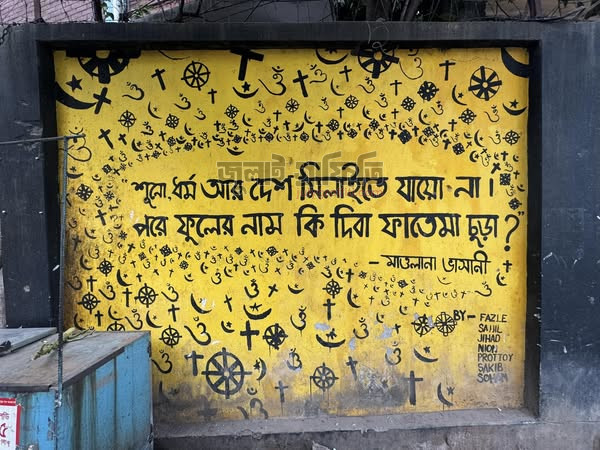 জুলাই স্মৃতি
"শুনো, ধর্ম আর দেশ মিলাইতে যায়ো না।
পরে ফুলের নাম কি দিবা ফাতেমা চুড়া?"
- মাওলানা ভাসানী
BY- FAZLE
SAHIL
JIHAD
NION
PROTTOY
SAKIB
SOHAM